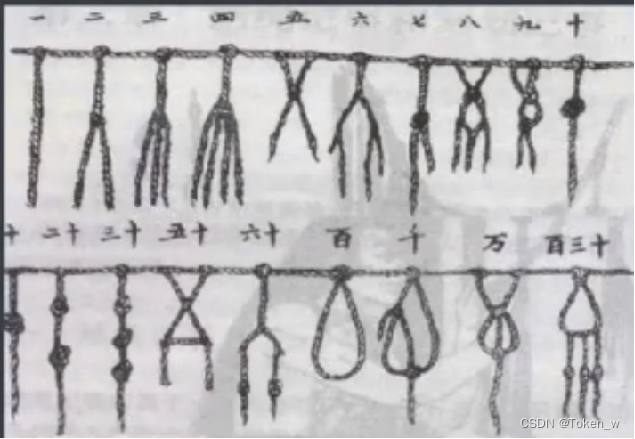 一 二 三 四 五 六 七 八 九 十
十 二十 三十 五十 六十 百 千 万 百三十
CSDN @Token_w